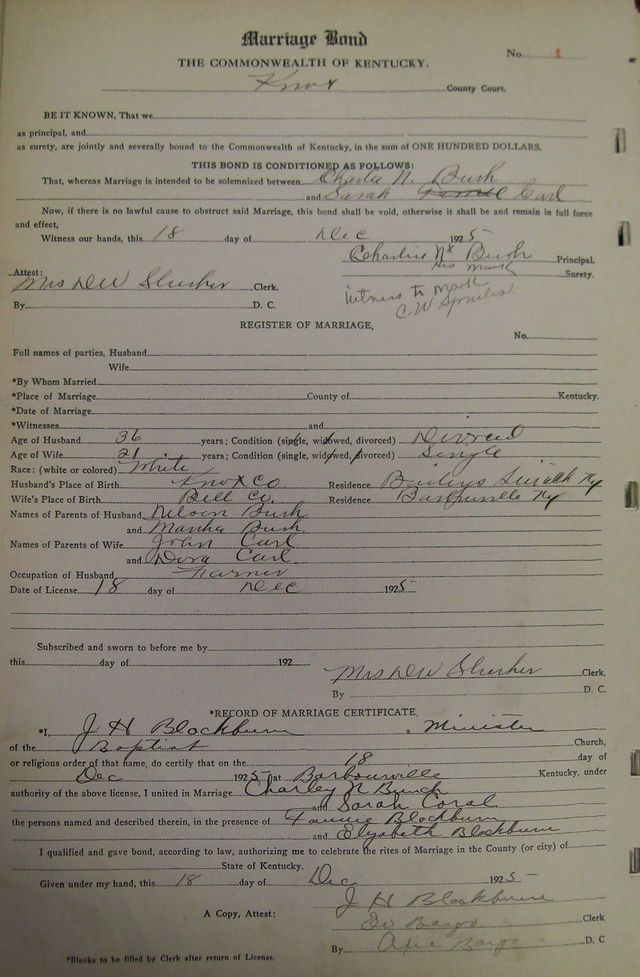 Marriage Bond
No. 1
THE COMMONWEALTH OF KENTUCKY.
Knox County Court.
BE IT KNOWN, That we
as principal, and
as surety, are jointly and severally bound to the Commonwealth of Kentucky, in the sum of ONE HUNDRED DOLLARS.
THIS BOND IS CONDITIONED AS FOLLOWS:
That, whereas Marriage is intended to be solemnized between Charlie N. Bush
and Sarah Carl
Now, if there is no lawful cause to obstruct said Marriage, this bond shall be void, otherwise it shall be and remain in full force
and effect,
Witness our hands, this 18 day of Dec 1925
Charlie N x Bush Principal.
his mark Surety.
Attest:
Mrs D W Slusher Clerk.
witness to mark
C. W
By D. C.
REGISTER OF MARRIAGE,
No.
Full names of parties, Husband
Wife
*By Whom Married
*Place of Marriage County of Kentucky.
*Date of Marriage
*Witnesses and
Age of Husband 36 years; Condition (single, widowed, divorced) Divorced
Age of Wife 21 years; Condition (single, widowed, divorced) Single
Race: (white or colored) White
Husband's Place of Birth Knox Co Residence Baileys Ky
Wife's Place of Birth Bell Co. Residence Barbourville Ky
Names of Parents of Husband Nelson Bush
and Martha Bush
Names of Parents of Wife John Carl
and Dora Carl
Occupation of Husband Farmer
Date of License 18 day of Dec 1925
Subscribed and sworn to before me by
this day of 192
Mrs D W Slusher Clerk,
By D. C.
*RECORD OF MARRIAGE CERTIFICATE,
*I, J H Blackburn, Minister
of the Baptist Church,
or religious order of that name, do certify that on the 18 day of
Dec 1925 at Barbourville Kentucky, under
authority of the above license, I united in Marriage Charley N Bunch
and Sarah Coral
the persons named and described therein, in the presence of Fannie Blackburn
and Elyzabeth Blackburn
I qualified and gave bond, according to law, authorizing me to celebrate the rites of Marriage in the County (or city) of
State of Kentucky.
Given under my hand, this 18 day of Dec 1925
J H Blackburn
A Copy, Attest: Clerk
By D. C
*Blanks to be filled by Clerk after return of License.